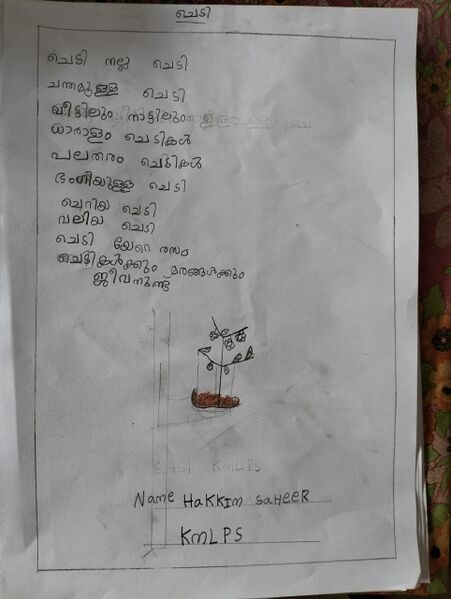 ചെടി
ചെടി നല്ല ചെടി
ചന്തമുള്ള ചെടി
വീട്ടിലും നാട്ടിലും
ധാരാളം ചെടികൾ
പലതരം ചെടികൾ
ഭംഗിയുള്ള ചെടി
ചെറിയ ചെടി
വലിയ ചെടി
ചെടി യേറെ രസം
ചെടികൾക്കും മരങ്ങൾക്കും
ജീവനുണ്ട്
School KMLPS
Name HaKKIM SaHEER
KMLPS